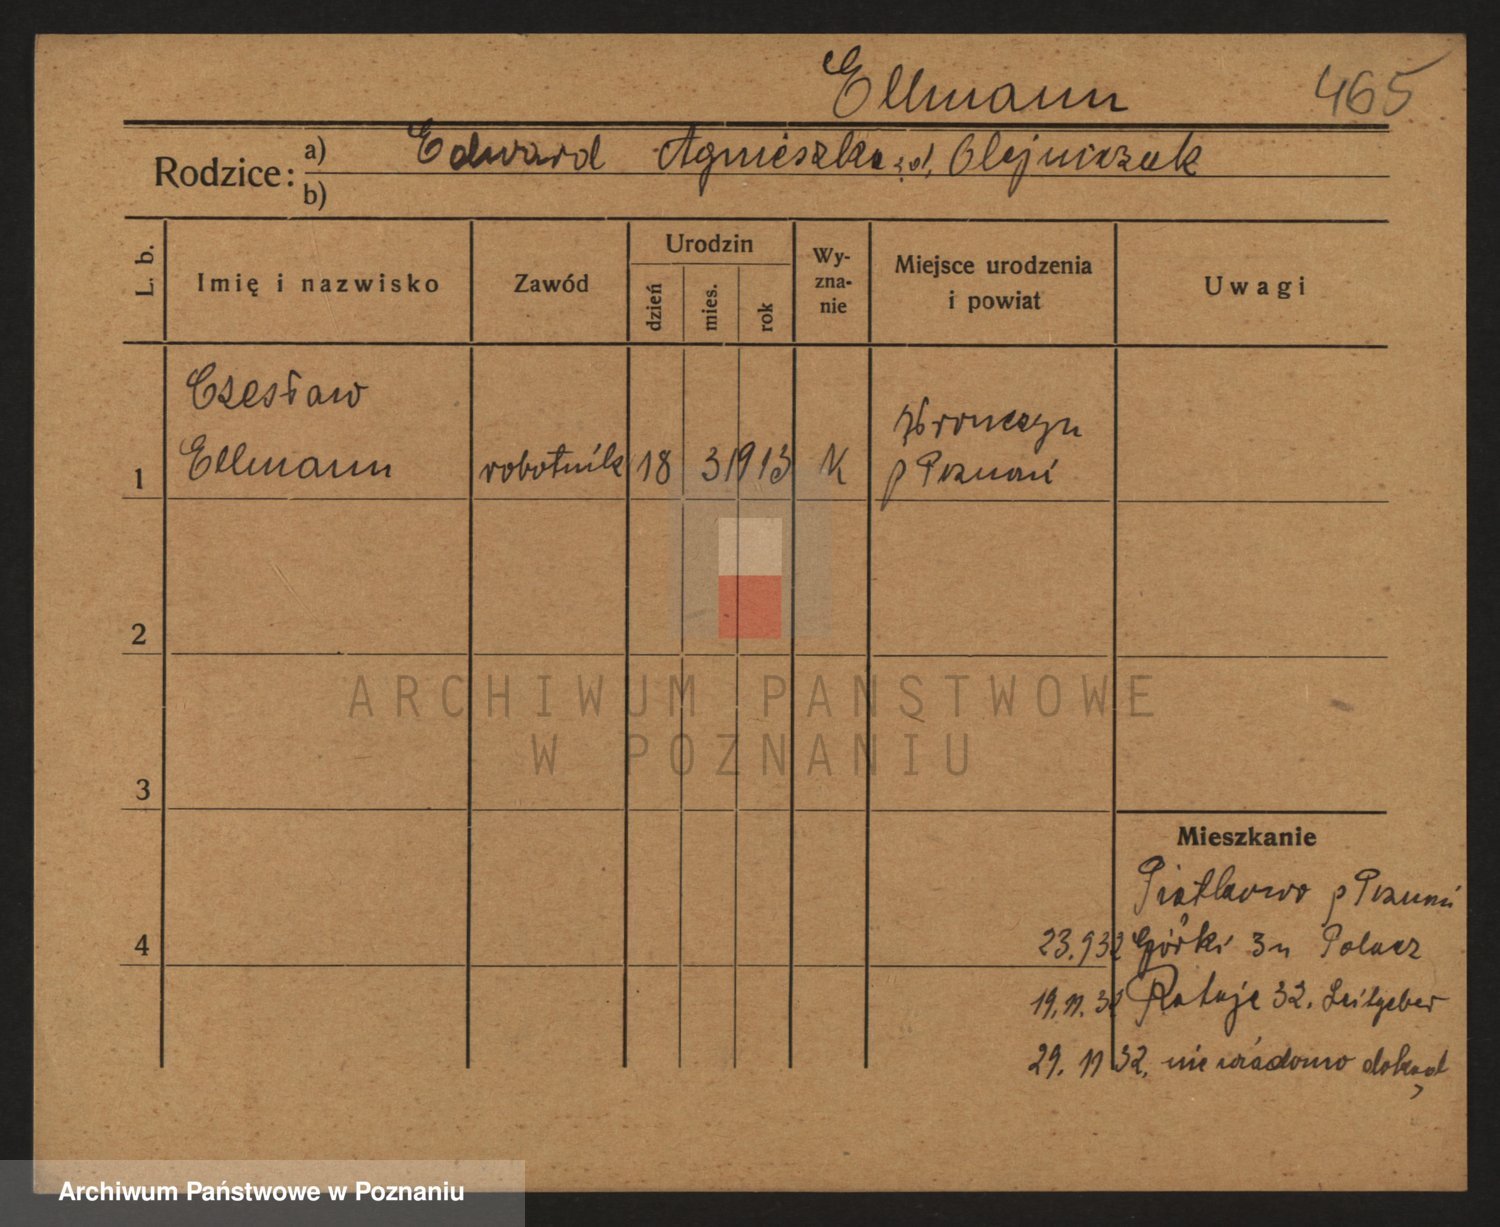 Ellmann 465
Rodzice: a) Edward Agnieszka zd. Olejniczak
b)
L. b. Imię i nazwisko Zawód Urodzin dzień mies. rok Wy-zna-nie Miejsce urodzenia i powiat Uwagi
Czesław
1 Ellmann robotnik 18 3 1913 K
p Poznań
2
ARCHIWUM PAŃSTWOWE
W POZNANIU
3
Mieszkanie
p Poznań
4 23.9 32 Górki 3 u Polacz
19.11.32 Rataje 32. Leitgeber
29. 11 32. niewiadomo dokąd
Archiwum Państwowe w Poznaniu